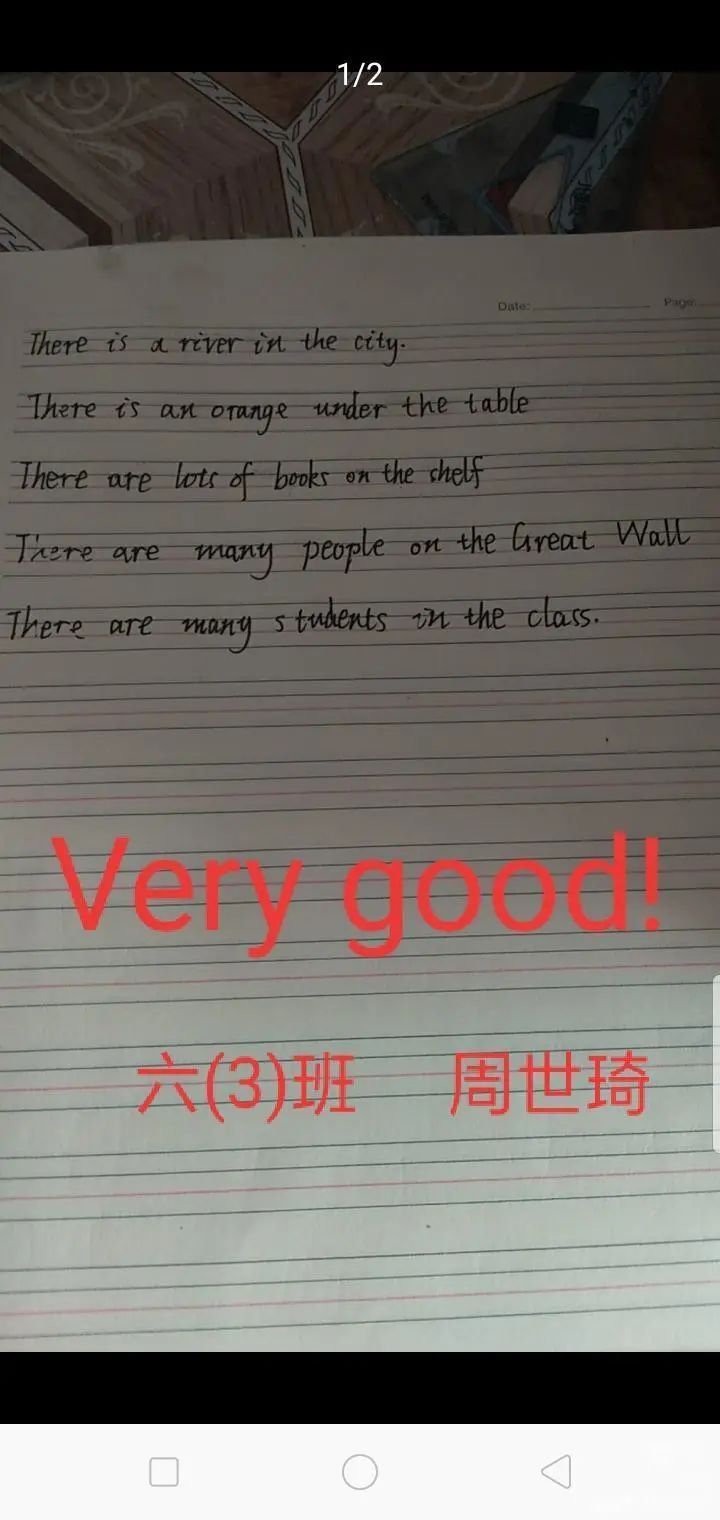 1/2
Date: Page:
There is a river in the city.
There is an orange under the table
There are lots of books on the shelf
There are many people on the Great Wall
There are many students in the class.
Very good!
六(3)班 周世琦